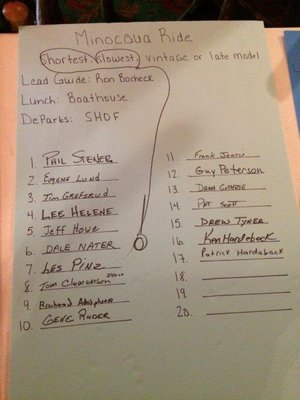 Minocqua Ride
Shortest, Slowest, vintage or late model
Lead Guide: Ron Bocheck
Lunch: Boathouse
Departs: SHOF
1. Phil Stener
2. Eugene Lund
3. Tim Grefsrud
4. LEE HELENE
5. Jeff Howe
6. DALE NATER
7. LES PINZ
8. Tom Clowenson
9. Richard
10. GENE RUDER
11. Frank
12. Guy Peterson
13. Dana
14. Pat Scott
15. DREW TYNER
16. Ken Hardeback
17. Patrick Hardeback
18.
19.
20.